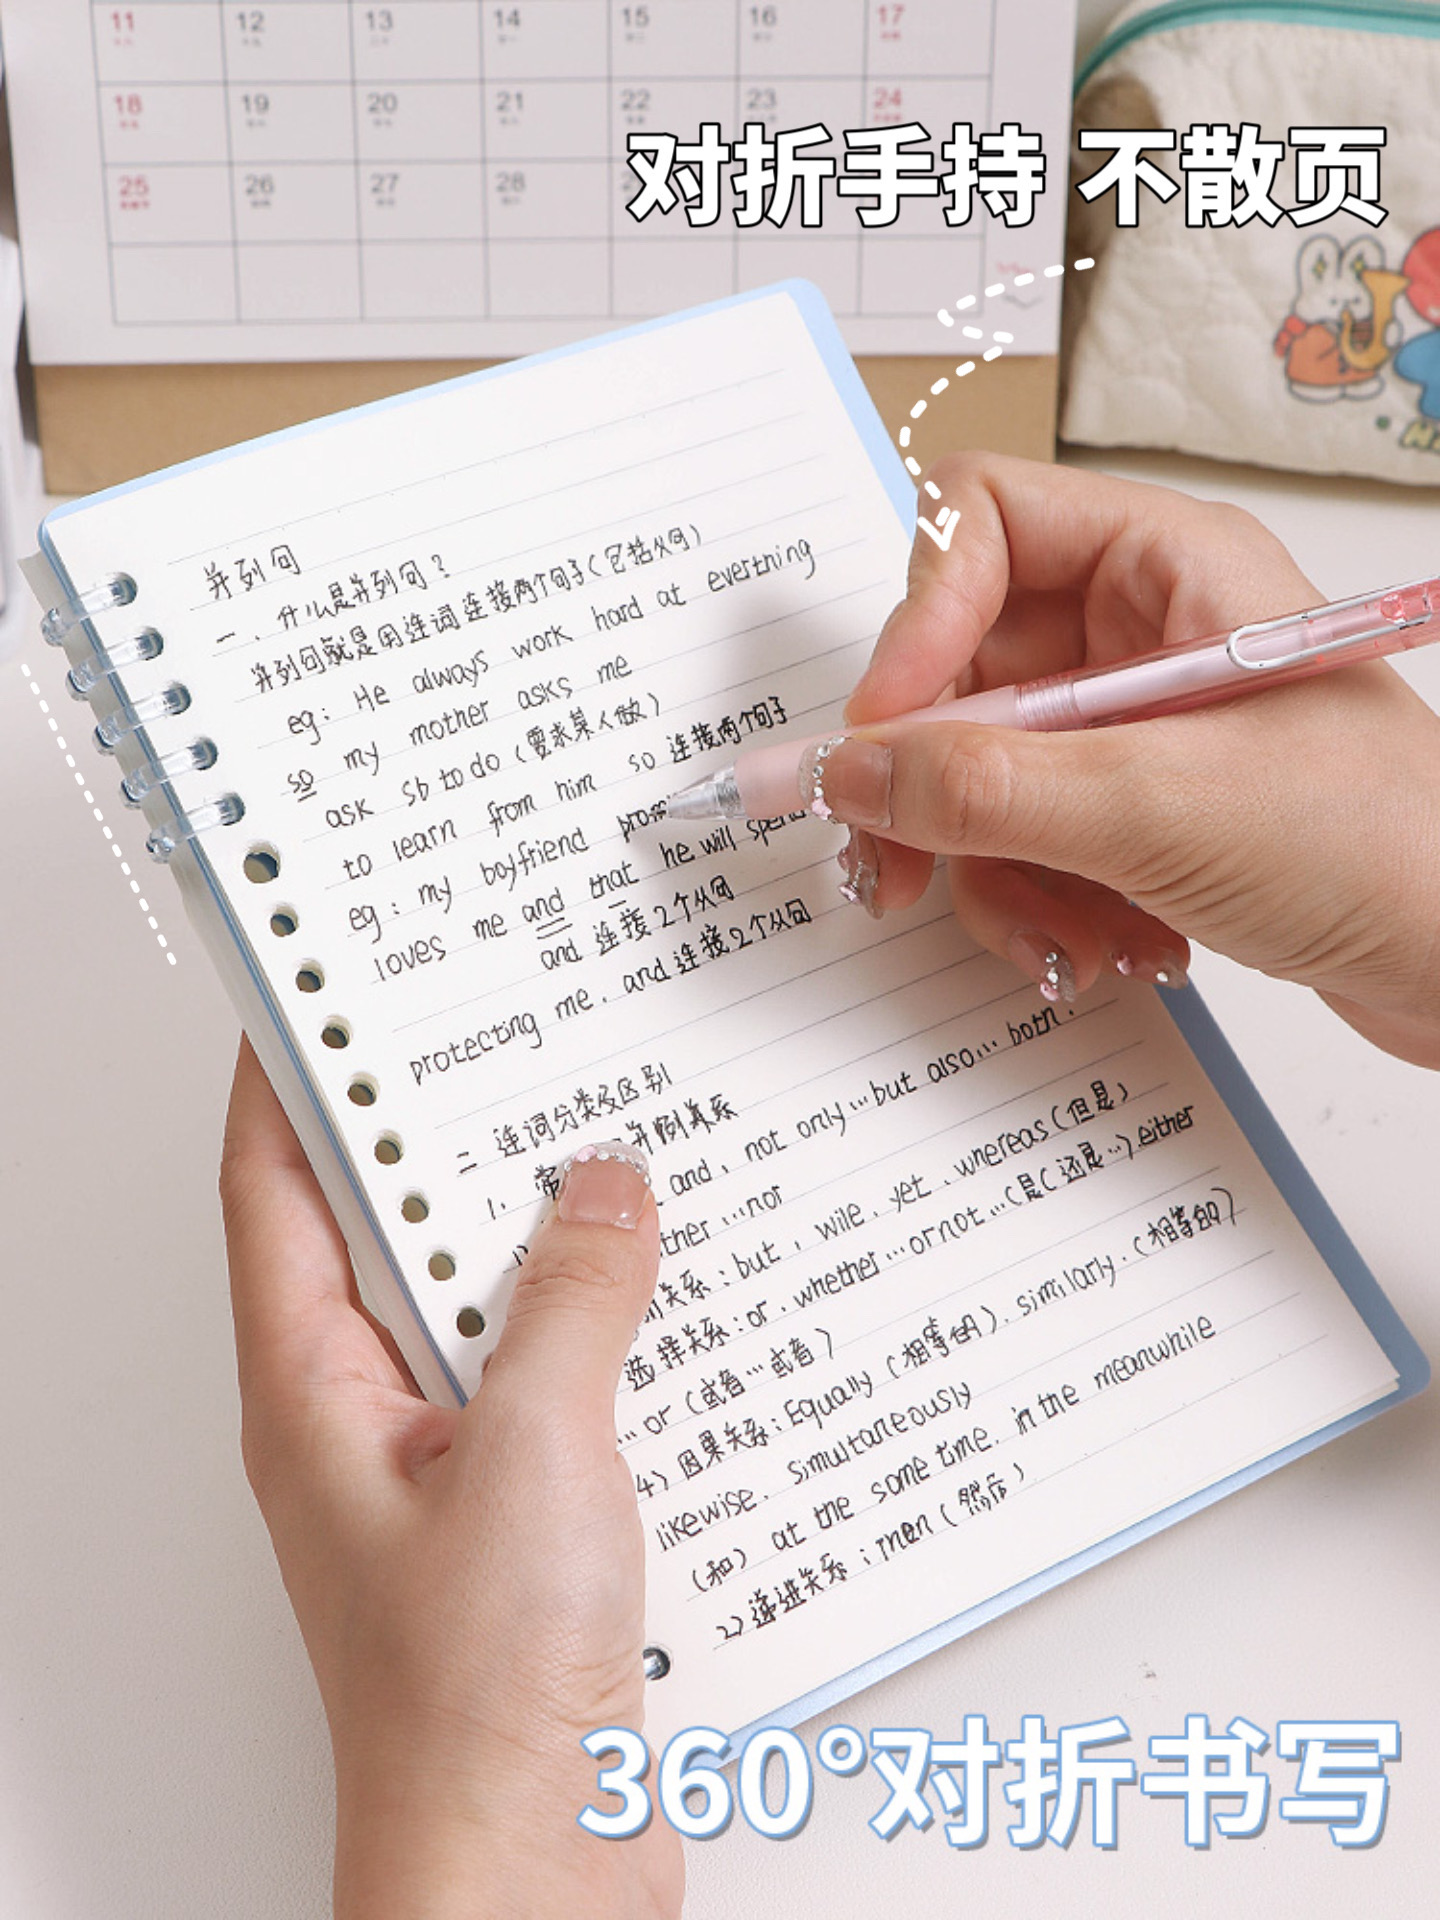 11 12 13 14 15 16 17
18 19 20 21 22 23 24
25 26 27 28
对折手持 不散页
并列句
一、什么是并列句？
并列句就是用连词连接两个句子(包括从句)
eg: He always work hard at everthing
so my mother asks me
ask sb to do (要求某人做)
to learn from him so 连接两个句子
eg: my boyfriend promi
loves me and that he will spend
and 连接2个从句
protecting me. and 连接2个从句
二 连词分类及区别
1. 常 并例关系
and、not only…but also… both.
ther…nor
关系:but, wile、yet、whereas(但是)
选择关系:or、whether…or not…(是(还是…) either
…or (或者…或者)
4) 因果关系:Equally (相等的)、similarly.(相等的)
likewise、simultaneously
(和) at the same time、in the meanwhile
2)递进关系:then (然后)
360°对折书写